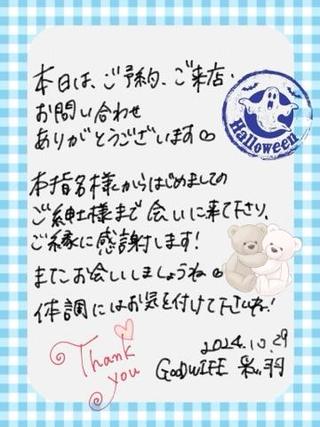 本日は、ご予約、ご来店、
お問い合わせ
ありがとうございます♡
Halloween
本指名様からはじめましての
ご紳士様まで会いに来て下さり、
ご縁に感謝します!
またお会いしましょうね♡
体調にはお気を付けて下さいね!
Thank
you
2024.10.29
GOODWIFE